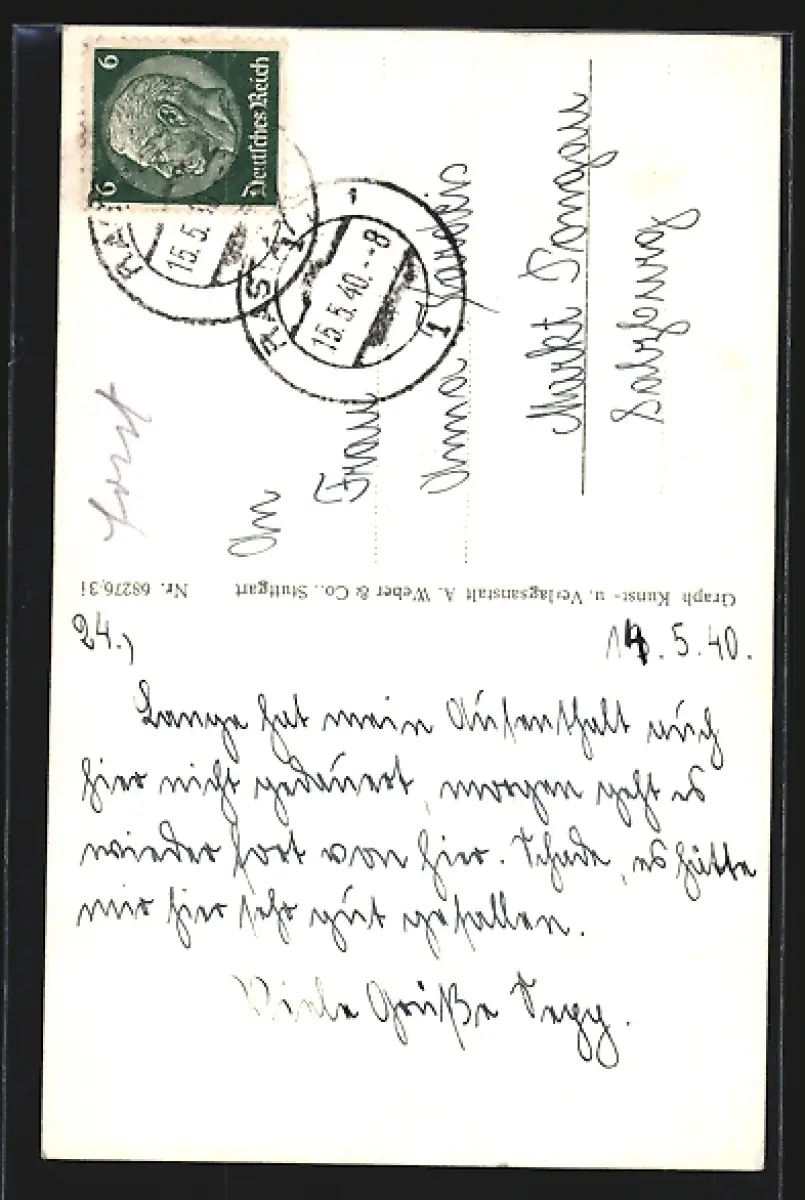 6 6
Deutsches Reich
RASTATT 1
15.5.40.-8
1
An
Frau
Anna
Markt Pongau
Salzburg
Graph. Kunst- u. Verlagsanstalt A. Weber & Co., Stuttgart Nr. 68276/31
24.) 14.5.40.
Lange hat mein Aufenthalt auch
hier nicht gedauert, morgen geht es
wieder fort von hier. Schade, es hätte
mir hier sehr gut gefallen.
Viele Grüße Sepp.